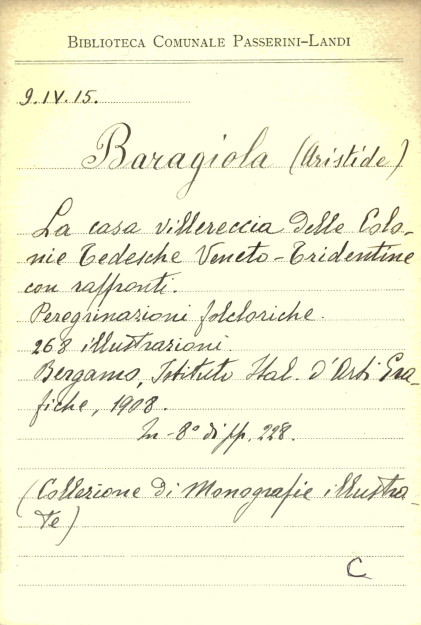 BIBLIOTECA COMUNALE PASSERINI-LANDI
9.IV.15.
Baragiola (Aristide)
La casa villereccia delle Colo-
nie Tedesche Veneto-Tridentine
con raffronti.
Peregrinazioni folcloriche.
268 illustrazioni
Bergamo, Istituto Ital. d'Arti Gra-
fiche, 1908.
In-8° di pp. 228.
(Collezione di Monografie illustra-
te)
C